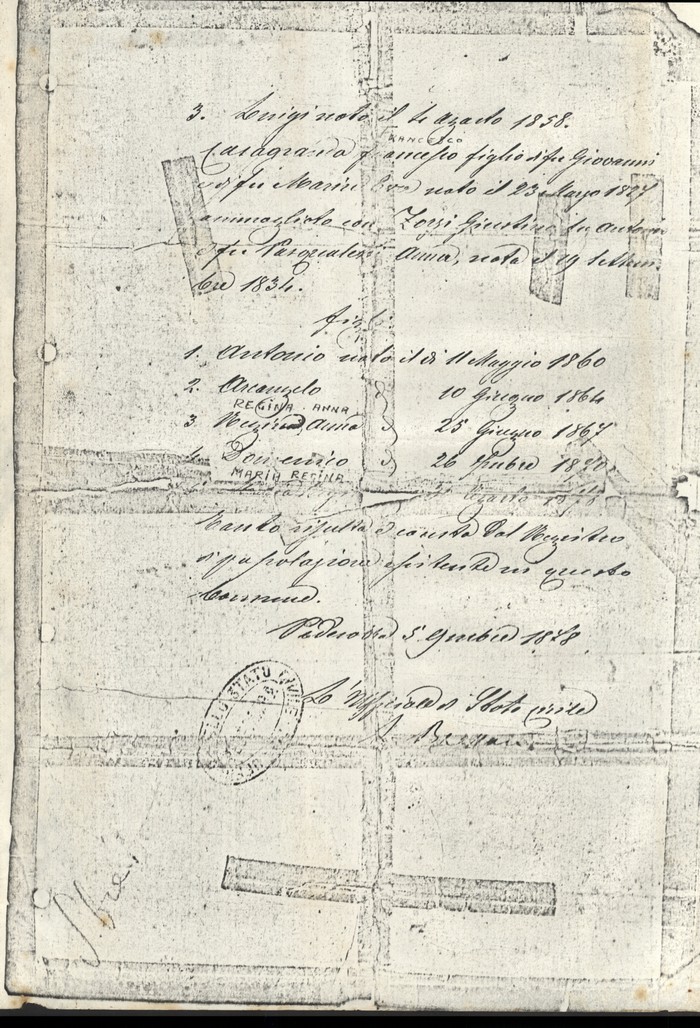 3. Luigi nato il 4 Agosto 1858.
FRANCESCO
Casagranda Francesco figlio di fu Giovanni
e di fu Maria nato il 23 Marzo 1827
ammogliato con Zorzi Giustina fu Antonio
e fu Pasqualini Anna, nata il 19 Settem
bre 1834.
figli
1. Antonio nato il di 11 Maggio 1860
2. Arcangelo 10 Giugno 1864
REGINA ANNA
3. Regina Anna 25 Giugno 1867
4. Domenico 26
MARIA REGINA
Agosto
Tanto risulta e consta dal Registro
di popolazione esistente in questo
Comune.
5 9mbre 1878
L'Uffiziale di Stato civile
STATO CIVILE